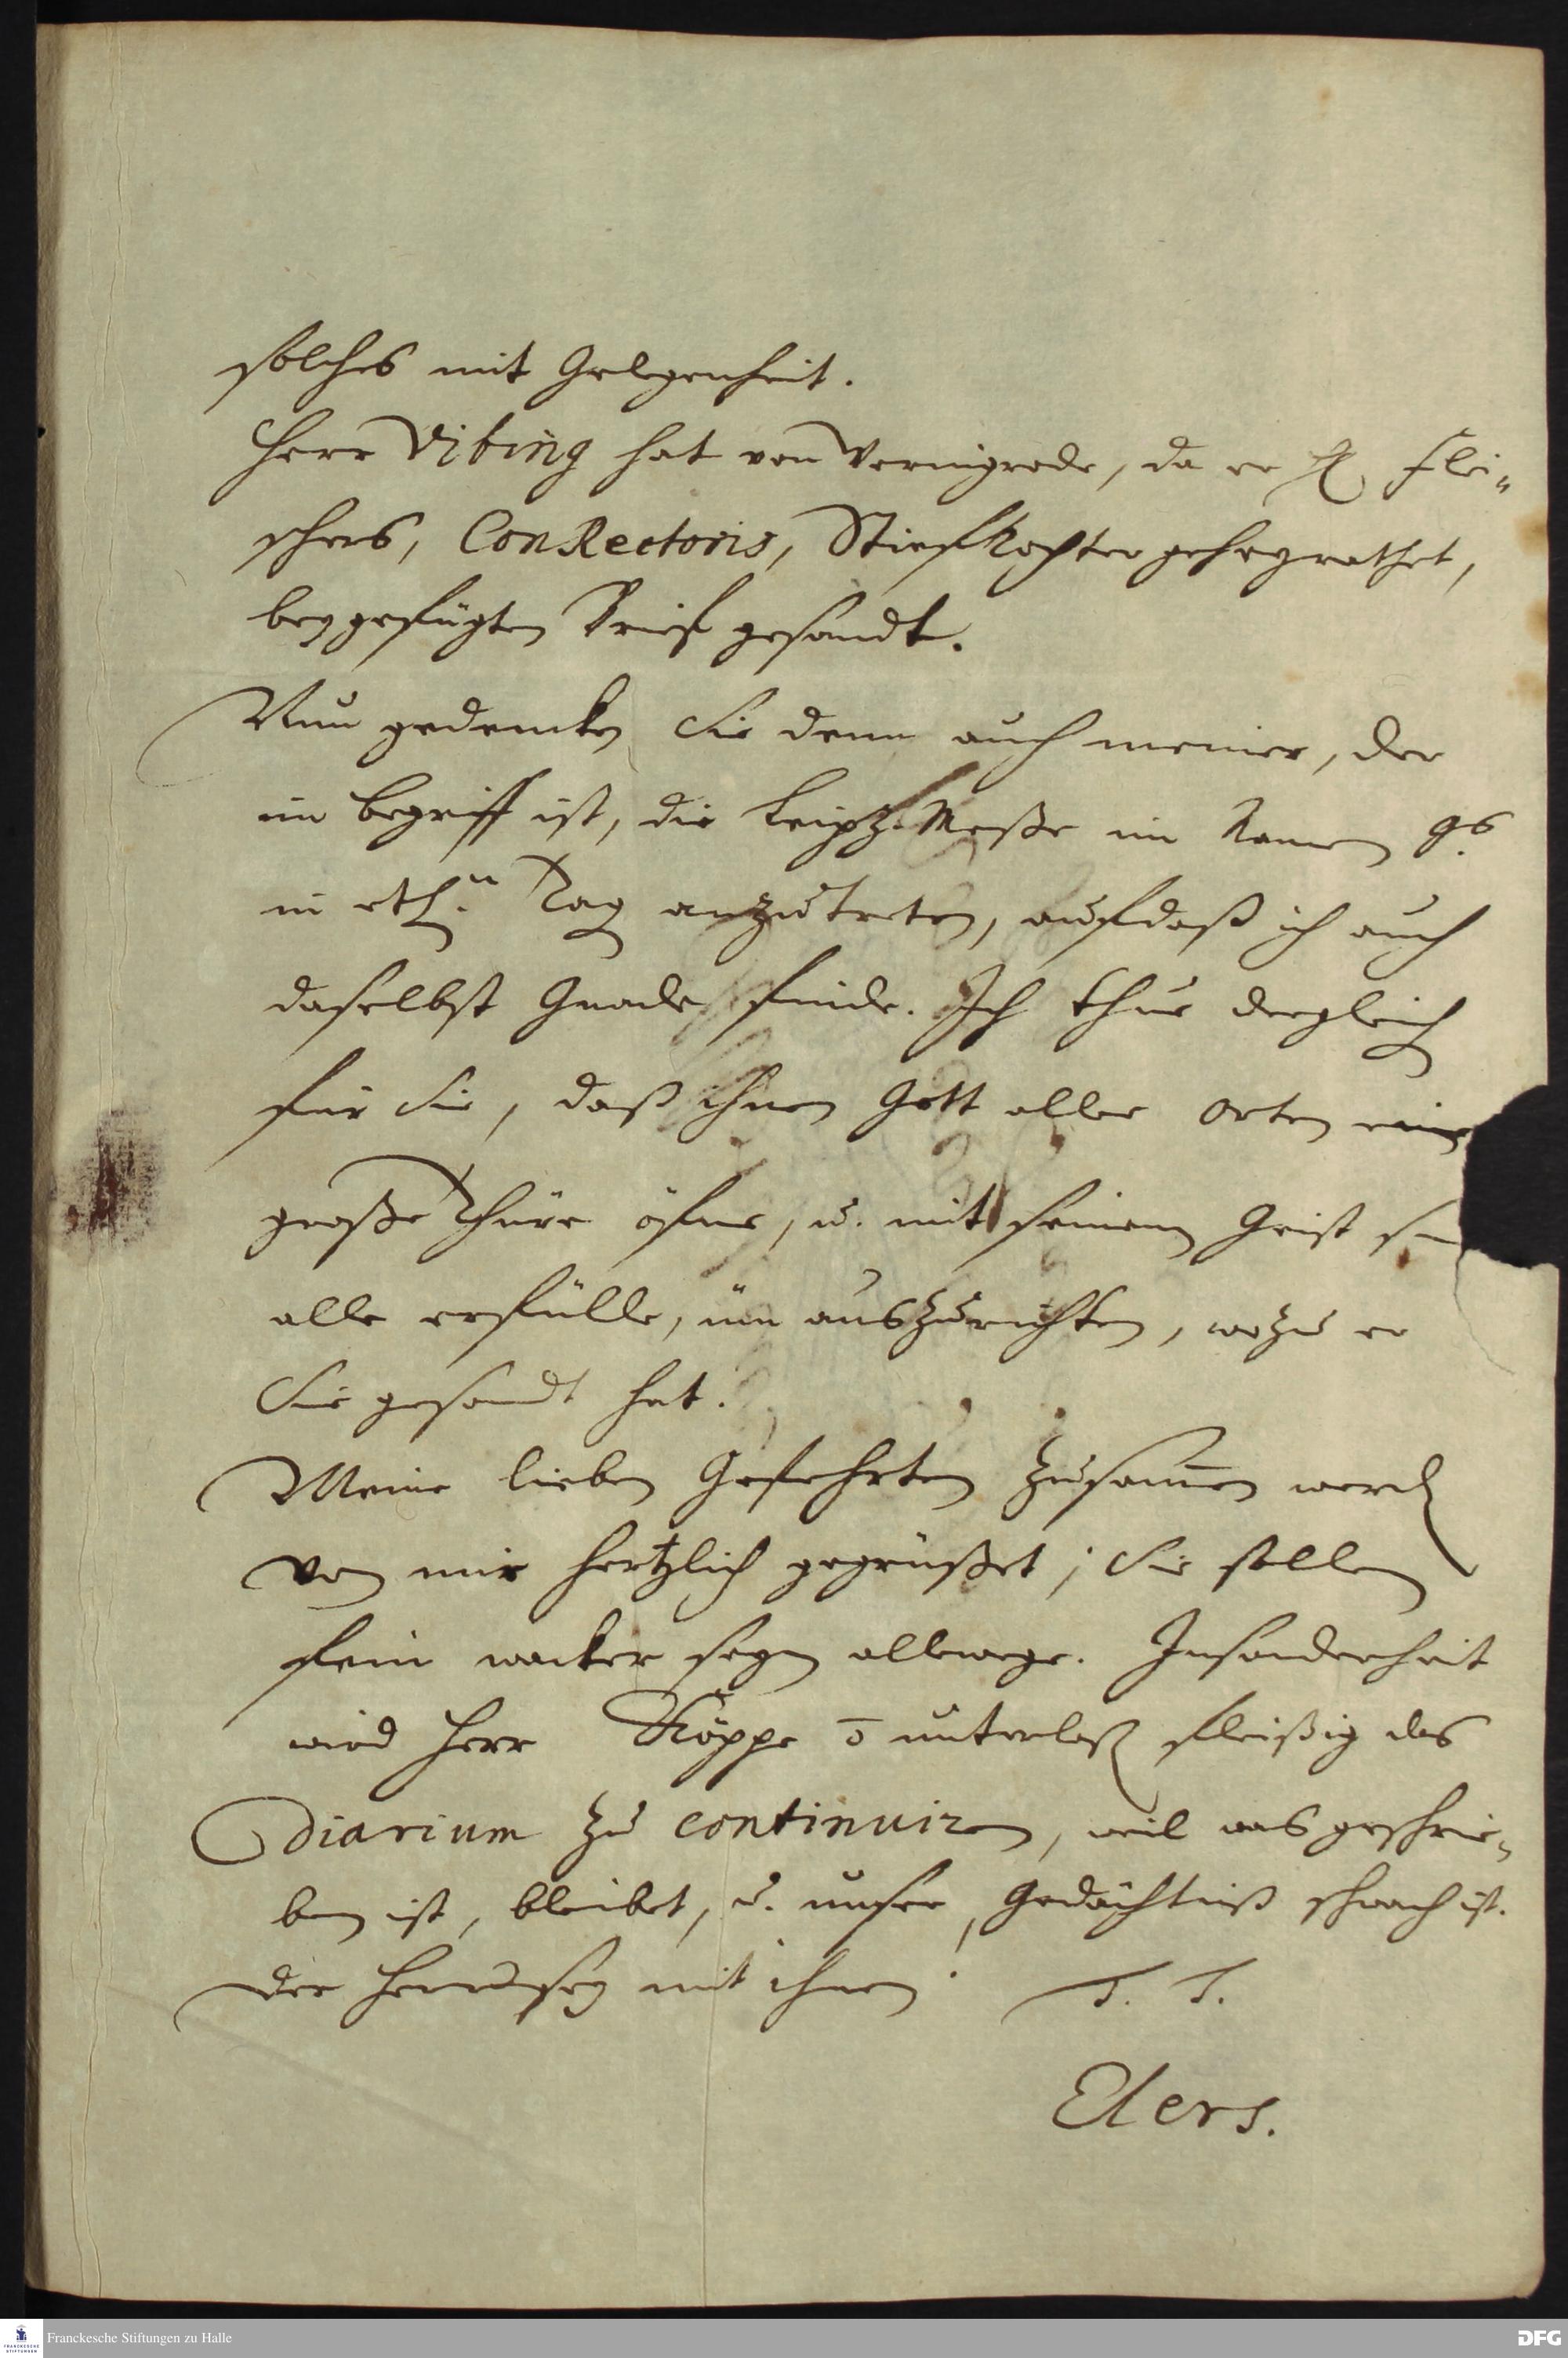 solches mit Gelegenheit.
Herr Vibing hat von Wernigrode, da er H. Flei-
schers, ConRectoris, Stieftochter geheyrathet,
beygefügten Brief gesandt.
Nun gedencken Sie denn auch meiner, der
im begriff ist, die Leipz. Meße im Namen Gs.
in etl.n Tag anzutreten, aufdaß ich auch
daselbst Gnade finde. Ich thue dergleich
für Sie, daß ihnen Gott aller Orten eine
große Thüre öfne, u. mit seinem Geist
alle erfülle, üm auszurichten, wozu er
Sie gesandt hat.
Meine lieben Gefehrten zusam̅en werd
von mir hertzlich gegrüßet; Sie sollen
fein wacker seyn allewege. Insonderheit
wird Herr Köppe unterlaß fleißig das
Diarium zu continuiren, weil was geschrie-
ben ist, bleibet, u. unser Gedächtniß schwach ist.
Der Herr sey mit ihnen. T. T.
Elers.
Franckesche Stiftungen zu Halle
DFG